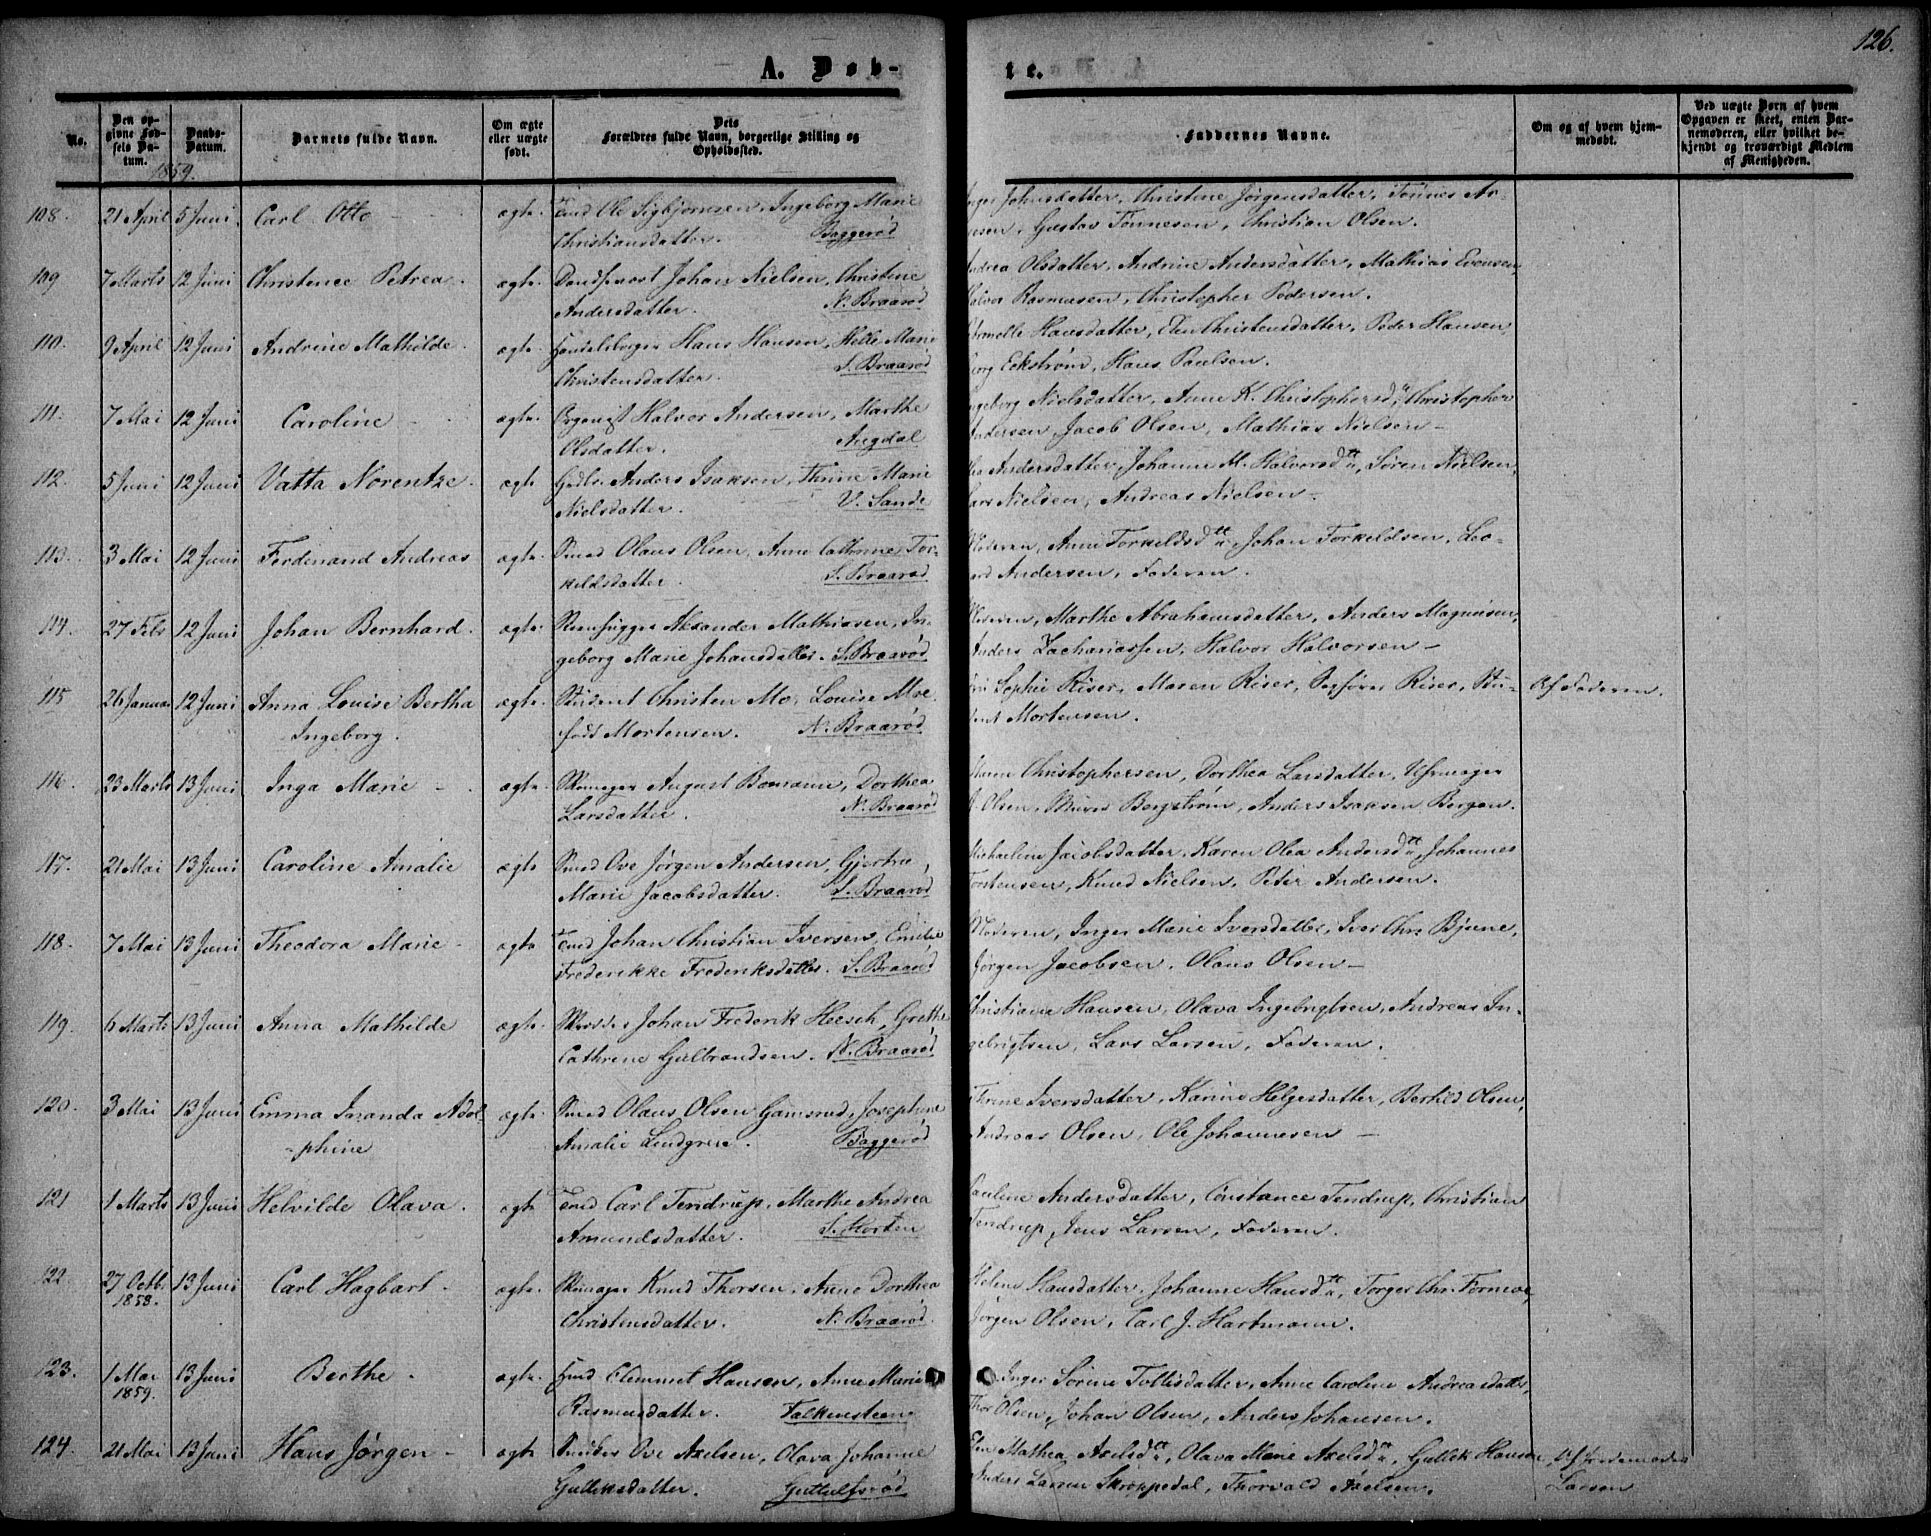 126.
A. Døb-
te.
No.
Den op-
givne Fød-
sels Da-
tum.
Daabs-
Datum.
Barnets fulde Navn.
Om ægte
eller uægte
født.
Dets
Forældres fulde Navn, borgerlige Stilling og
Opholdssted.
Faddernes Navne.
Om og af hvem hjem-
medøbt.
Ved uægte Børn af hvem
Opgaven er skeet, enten Bar-
nemoderen, eller hvilket be-
kjendt og troværdigt Medlem
af Menigheden.
1859.
108. 21 April 5 Juni. Carl Otto ægte. Ole Sigbjørnsen, Ingeborg Marie Johnsdatter, Christine Jørgensdatter, Tønnes
Christiansdatter. Baggerød Gustav Tønnesen, Christian Olsen.
109 7 Marts 12 Juni Christence Petrea. ægte. Johan Nielsen, Christine Olsdatter, Andrine Andersdatter, Mathias Evensen,
Andersdatter. N. Braarød Rasmussen, Christopher Pedersen.
110. 9 April 12 Juni Andrine Mathilde. ægte. Hans Hansen, Helle Marie Hansdatter, Elen Christensdatter, Peder Hansen,
Christensdatter. S. Braarød Eckstrøm, Hans Paulsen.
111. 7 Mai 12 Juni Caroline ægte. Halvor Andersen, Marthe Nielsdatter, Anne K. Christophersd., Christopher
Olsdatter. Augdal Andersen, Jacob Olsen, Mathias Nielsen
112. 5 Juni 12 Juni Vatta Norentze. ægte Anders Isaksen, Thrine Marie Andersdatter, Johanne M. Halvorsdtt., Søren Nielsen,
Nielsdatter. V. Sande Lars Nielsen, Andreas Nielsen.
113. 3 Mai 12 Juni Ferdinand Andreas ægte. Smed Olaus Olsen, Anne Cathrine Tor- Moderen, Anne Torkeldsdtt., Johan Torkeldsen, Leo-
keldsdatter. S. Braarød Andersen, Faderen.
114. 27 Feb 12 Juni Johan Bernhard. ægte. Mathiasen, In- Moderen, Marthe Abrahamsdatter, Anders Magnusen,
geborg Marie Johansdatter. S. Braarød Anders Zachariassen, Halvor Halvorsen
115 26 Januar 12 Juni Anna Louise Bertha ægte. Student Christen Mo, Louise Moe Sophie Riser, Maren Riser, Riser, Stu- Af Faderen.
Ingeborg. født Mortensen. N. Braarød dent Mortensen.
116. 23 Marts 13 Juni Inga Marie ægte. Skomager August Bomann, Dorthea Maren Christophersen, Dorthea Larsdatter,
Larsdatter. N. Braarød Olsen, Bergstrøm, Anders Isaksen Bergan.
117. 21 Mai 13 Juni Caroline Amalie ægte Smed Ove Jørgen Andersen, Gjertine Michaeline Jacobsdatter, Karen Olea Andersdtt., Johannes
Marie Jacobsdatter. S. Braarød Torstensen, Knud Nielsen, Peter Andersen.
118. 7 Mai 13 Juni Theodora Marie ægte Johan Christian Iversen, Emilie Moderen, Inger Marie Iversdatter, Iver Chr. Bjune,
Frederikke Frederiksdatter. S. Braarød Jørgen Jacobsen, Olaus Olsen
119. 6 Marts 13 Juni Anna Mathilde ægte. Johan Frederik Heesch, Grethe Christiane Hansen, Olava Ingebrigtsen, Andreas In-
Cathrine Gulbrandsen. N. Braarød gebrigtsen, Lars Larsen, Faderen.
120. 3 Mai 13 Juni Emma Imanda Adol- ægte. Smed Olaus Olsen, Josephine Thrine Iversdatter, Karine Helgesdatter, Berthel Olsen,
phine Amalie Lindgren. Baggerød Andreas Olsen, Ole Johannesen
121 1 Marts 13 Juni Helvilde Olava. ægte Carl Tendrup, Marthe Andrea Pauline Andersdatter, Constance Tendrup, Christian
Amundsdatter. S. Horten Tendrup, Jens Larsen, Faderen.
122. 27 Octb. 1858. 13 Juni Carl Hagbart. ægte. Skomager Knud Thorsen, Anne Dorthea Helene Hansdatter, Johanne Hansdtt., Torger Chr.
Christensdatter. N. Braarød. Jørgen Olsen, Carl J. Hartmann.
123. 1 Mar 1859. 13 Juni Berthe ægte. Clemmet Hansen, Anne Marie Inger Sørine Tollisdatter, Anne Caroline Andreasdatter,
Rasmusdatter. Falkensteen Thor Olsen, Johan Olsen, Anders Johansen.
124. 21 Mai 13 Juni Hans Jørgen ægte Ove Axelsen, Olava Johanne Mathea Axelsdtt., Olava Marie Axelsdtt., Gullik Hansen, Af
Gulliksdatter. Guttulfsrød Anders Larsen Skroppedal, Thorvald Axelsen. Larsen